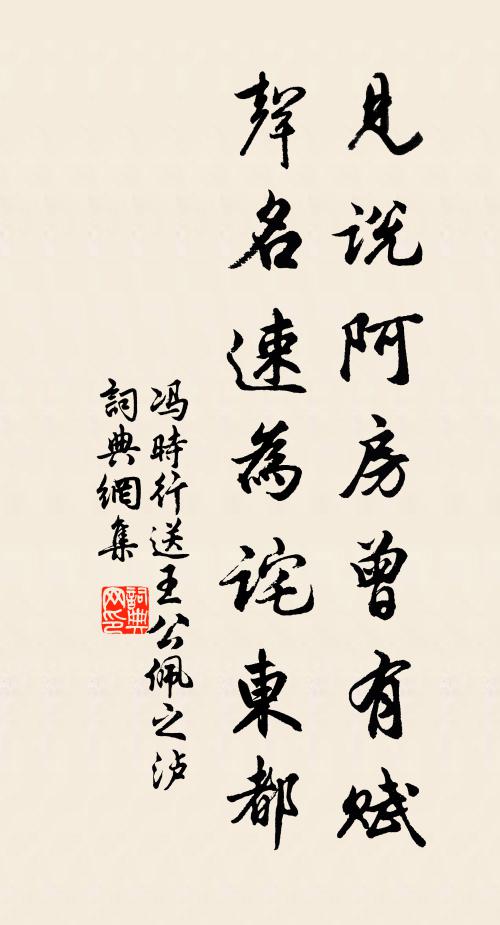 見説阿房曾有賦
聲名速為詫東都
冯時行送王公佩之泸
詞典網集
詞典网印